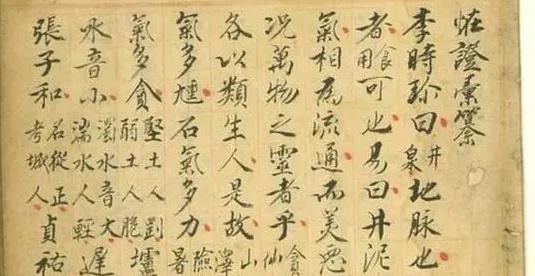 恠證彙纂
李時珍曰井泉地脉也
者食用可也易曰井泥
氣相為流通而美惡
况萬物之靈者乎貪仙
各以類生人是故山澤
氣多尰石氣多力險暑
氣多貪堅土人剛弱土人脆壚
水音小濁水音大湍水人輕遲
張子和名從正考城人貞祐